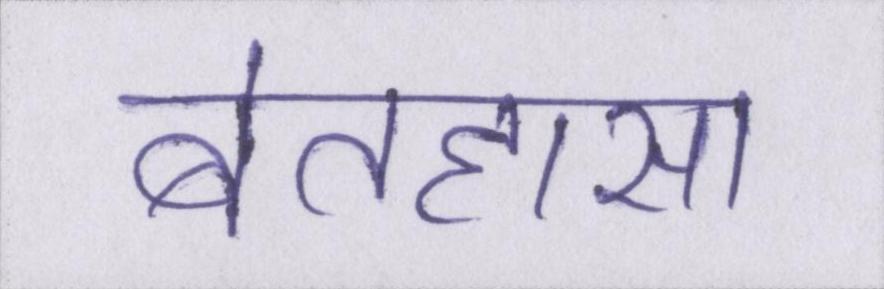 बेतहासा